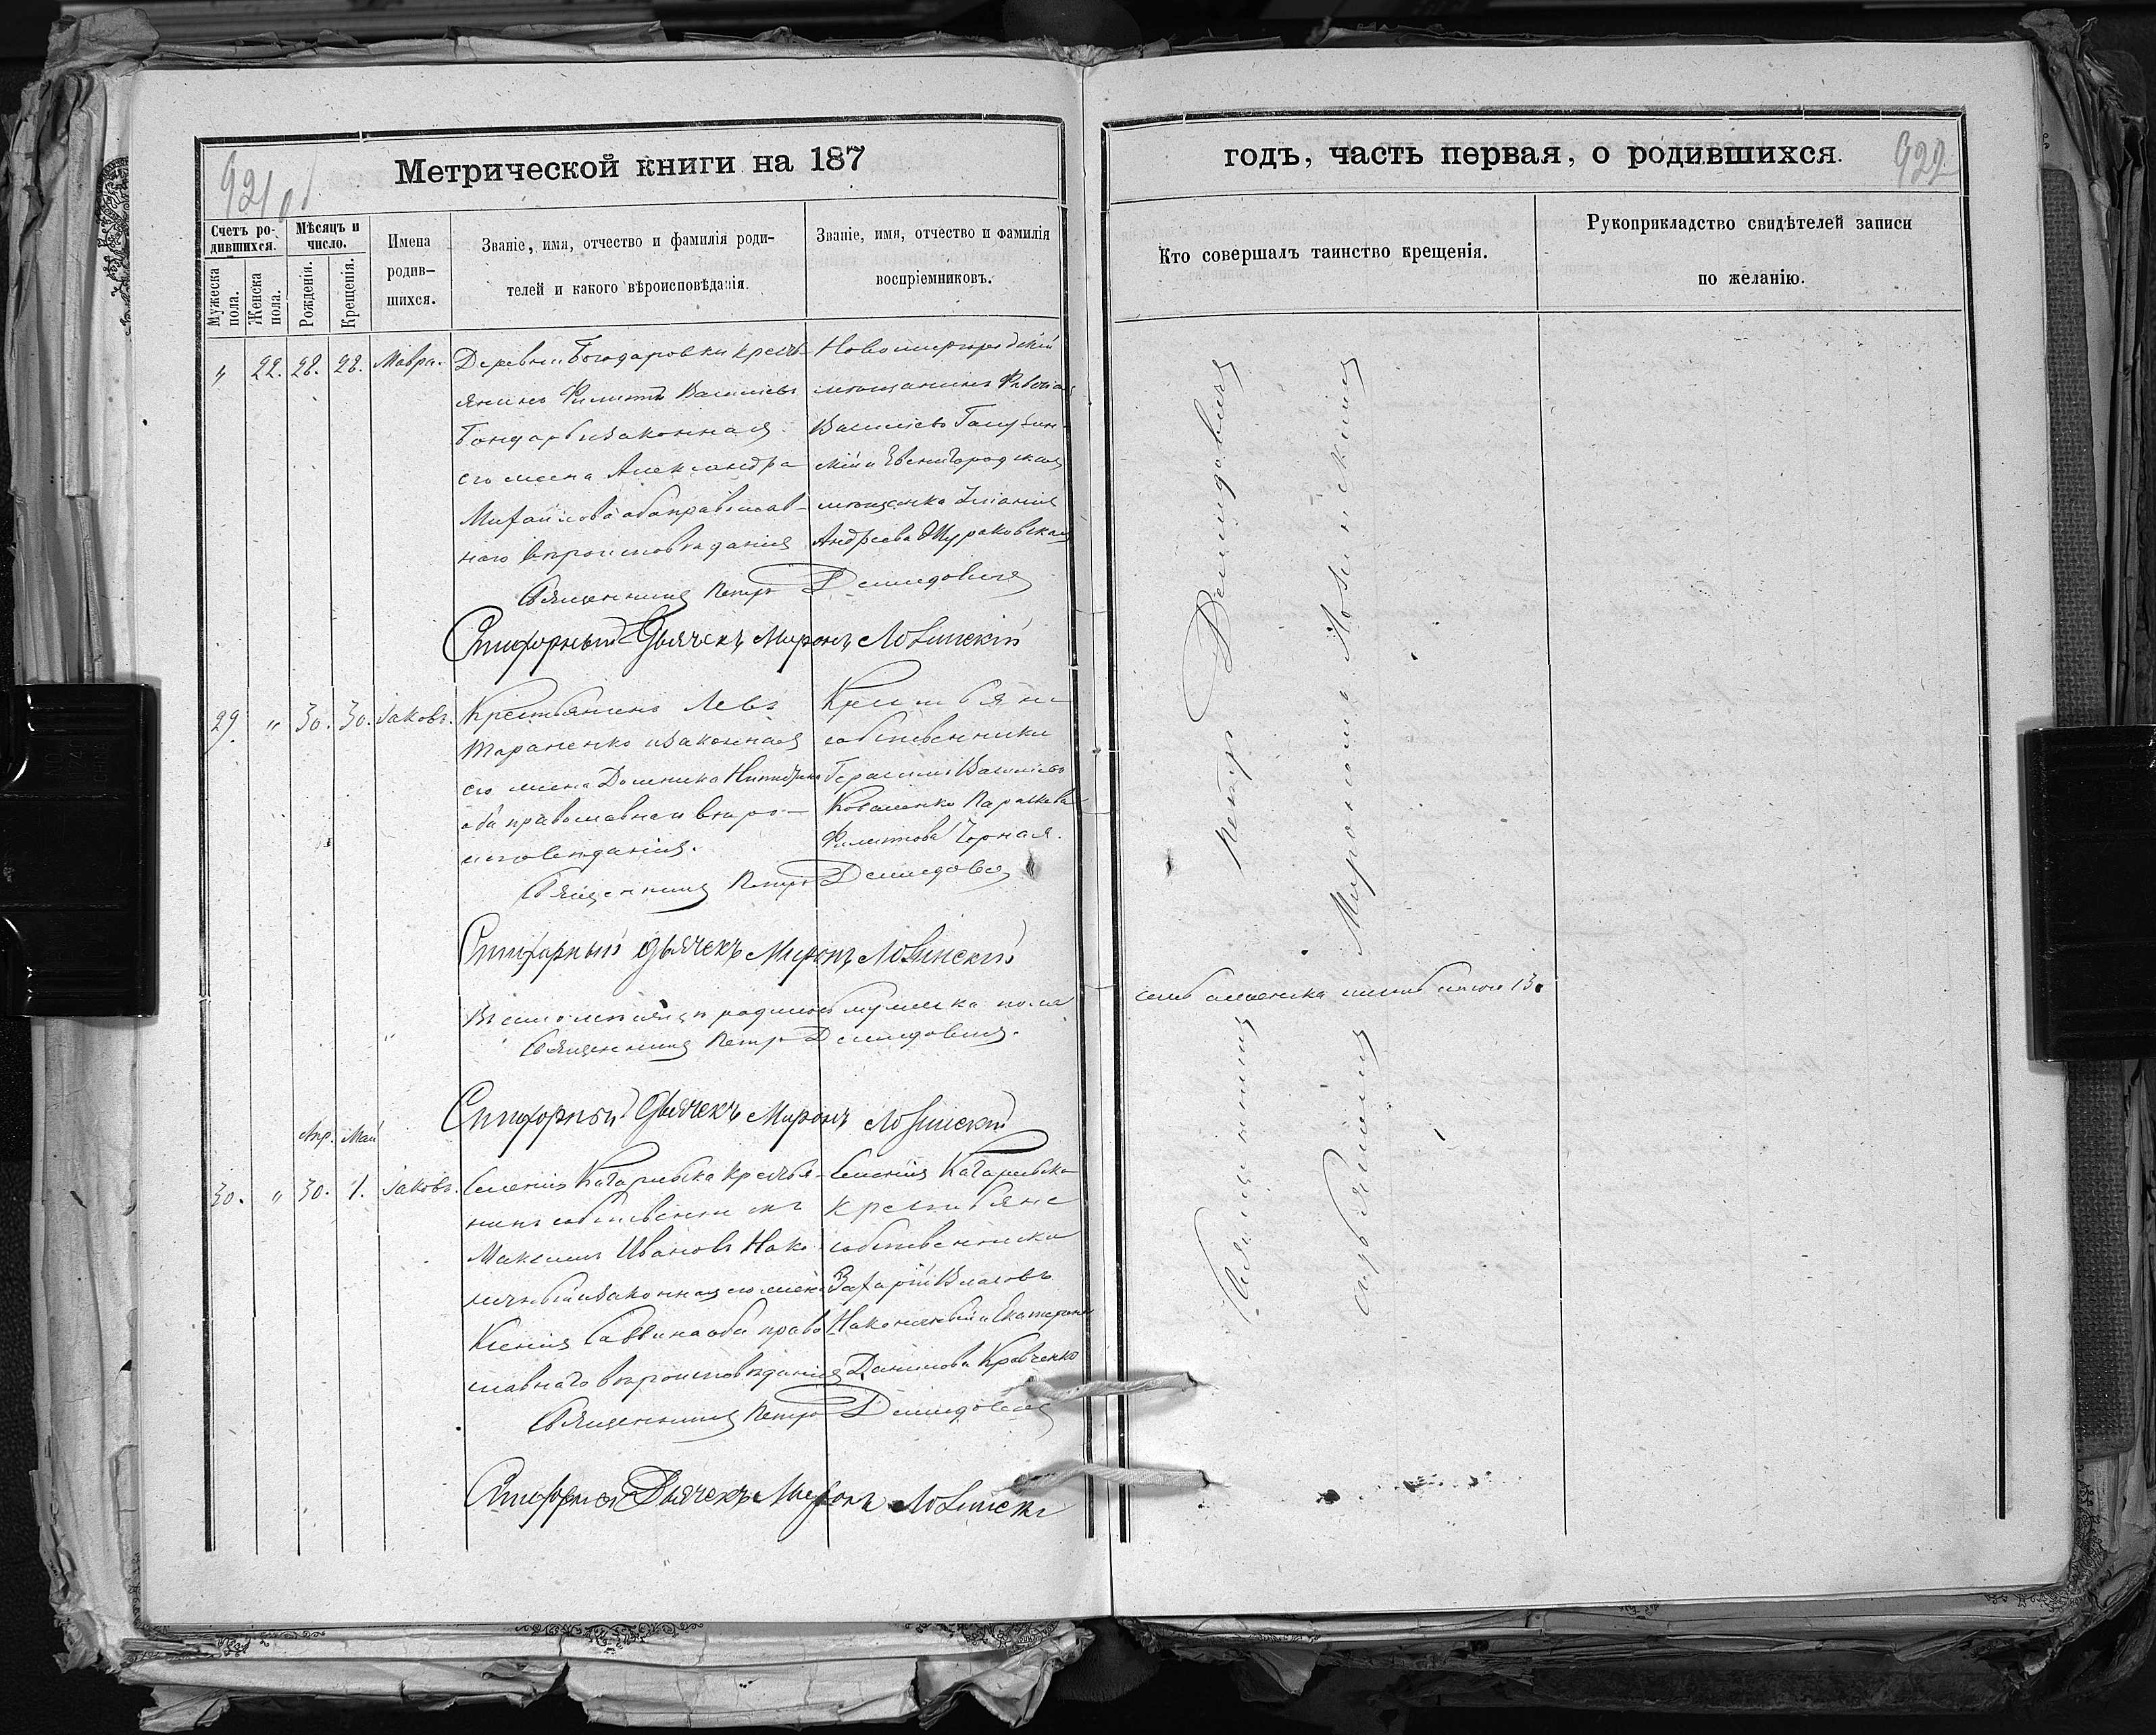 921 об
Метрической книги на 187
Счетъ родившихся.
Мужеска пола.
Женска пола.
Мѣсяцъ и число.
Рожденія.
Крещенія.
Имена родив–
шихся.
Званіе, имя, отчество и фамилія роди–
телей и какого вѣроисповѣданія.
Званіе, имя, отчество и фамилія
воспріемниковъ.
" 22. 28. 28. Мавра.
Деревни Богодаровки кресть–
янинъ Филиппъ Васильевъ
Бондарь и законная
его жена Александра
Михайлова оба православ–
наго вѣроисповѣданія
Новомиргородскій
мѣщанинъ
Васильевъ
и Звенигородская
мѣщанка
Андреева Жураковская
Священникъ Петръ Демидовичъ
Стихарный Дьячекъ Миронъ Лозинскій
29. " 30. 30. Іаковъ.
Крестьянинъ Левъ
Тараненко и законная
его жена Домника Никитина
оба православнаго вѣро–
исповѣданія.
Крестьяне
собственники
Герасимъ Васильевъ
Коваленко Параскева
Филиппова Чорная.
Священникъ Петръ Демидовичъ
Стихарный Дьячекъ Миронъ Лозинскій
Въ семъ мѣсяцѣ родилось мужеска пола
семь а женска шесть итого 13.
Священникъ Петръ Демидовичъ.
Стихарный Дьячекъ Миронъ Лозинскій
Апр. Май
30. " 30. 1. Іаковъ.
Селенія кресть–
янинъ собственникъ
Максимъ Ивановъ Нако–
нечный и законная его жена
Ксенія Саввина оба право–
славнаго вѣроисповѣданія
Селенія
крестьяне
собственники
Захарій Власовъ
Наконечный и Екатерина
Данилова Кравченко
Священникъ Петръ Демидовичъ
Стихарный Дьячекъ Миронъ Лозинскій
годъ, часть первая, о родившихся.
922
Кто совершалъ таинство крещенія.
Рукоприкладство свидѣтелей записи
по желанію.
Священникъ Петръ Демидовичъ
Мирономъ Лозинскимъ